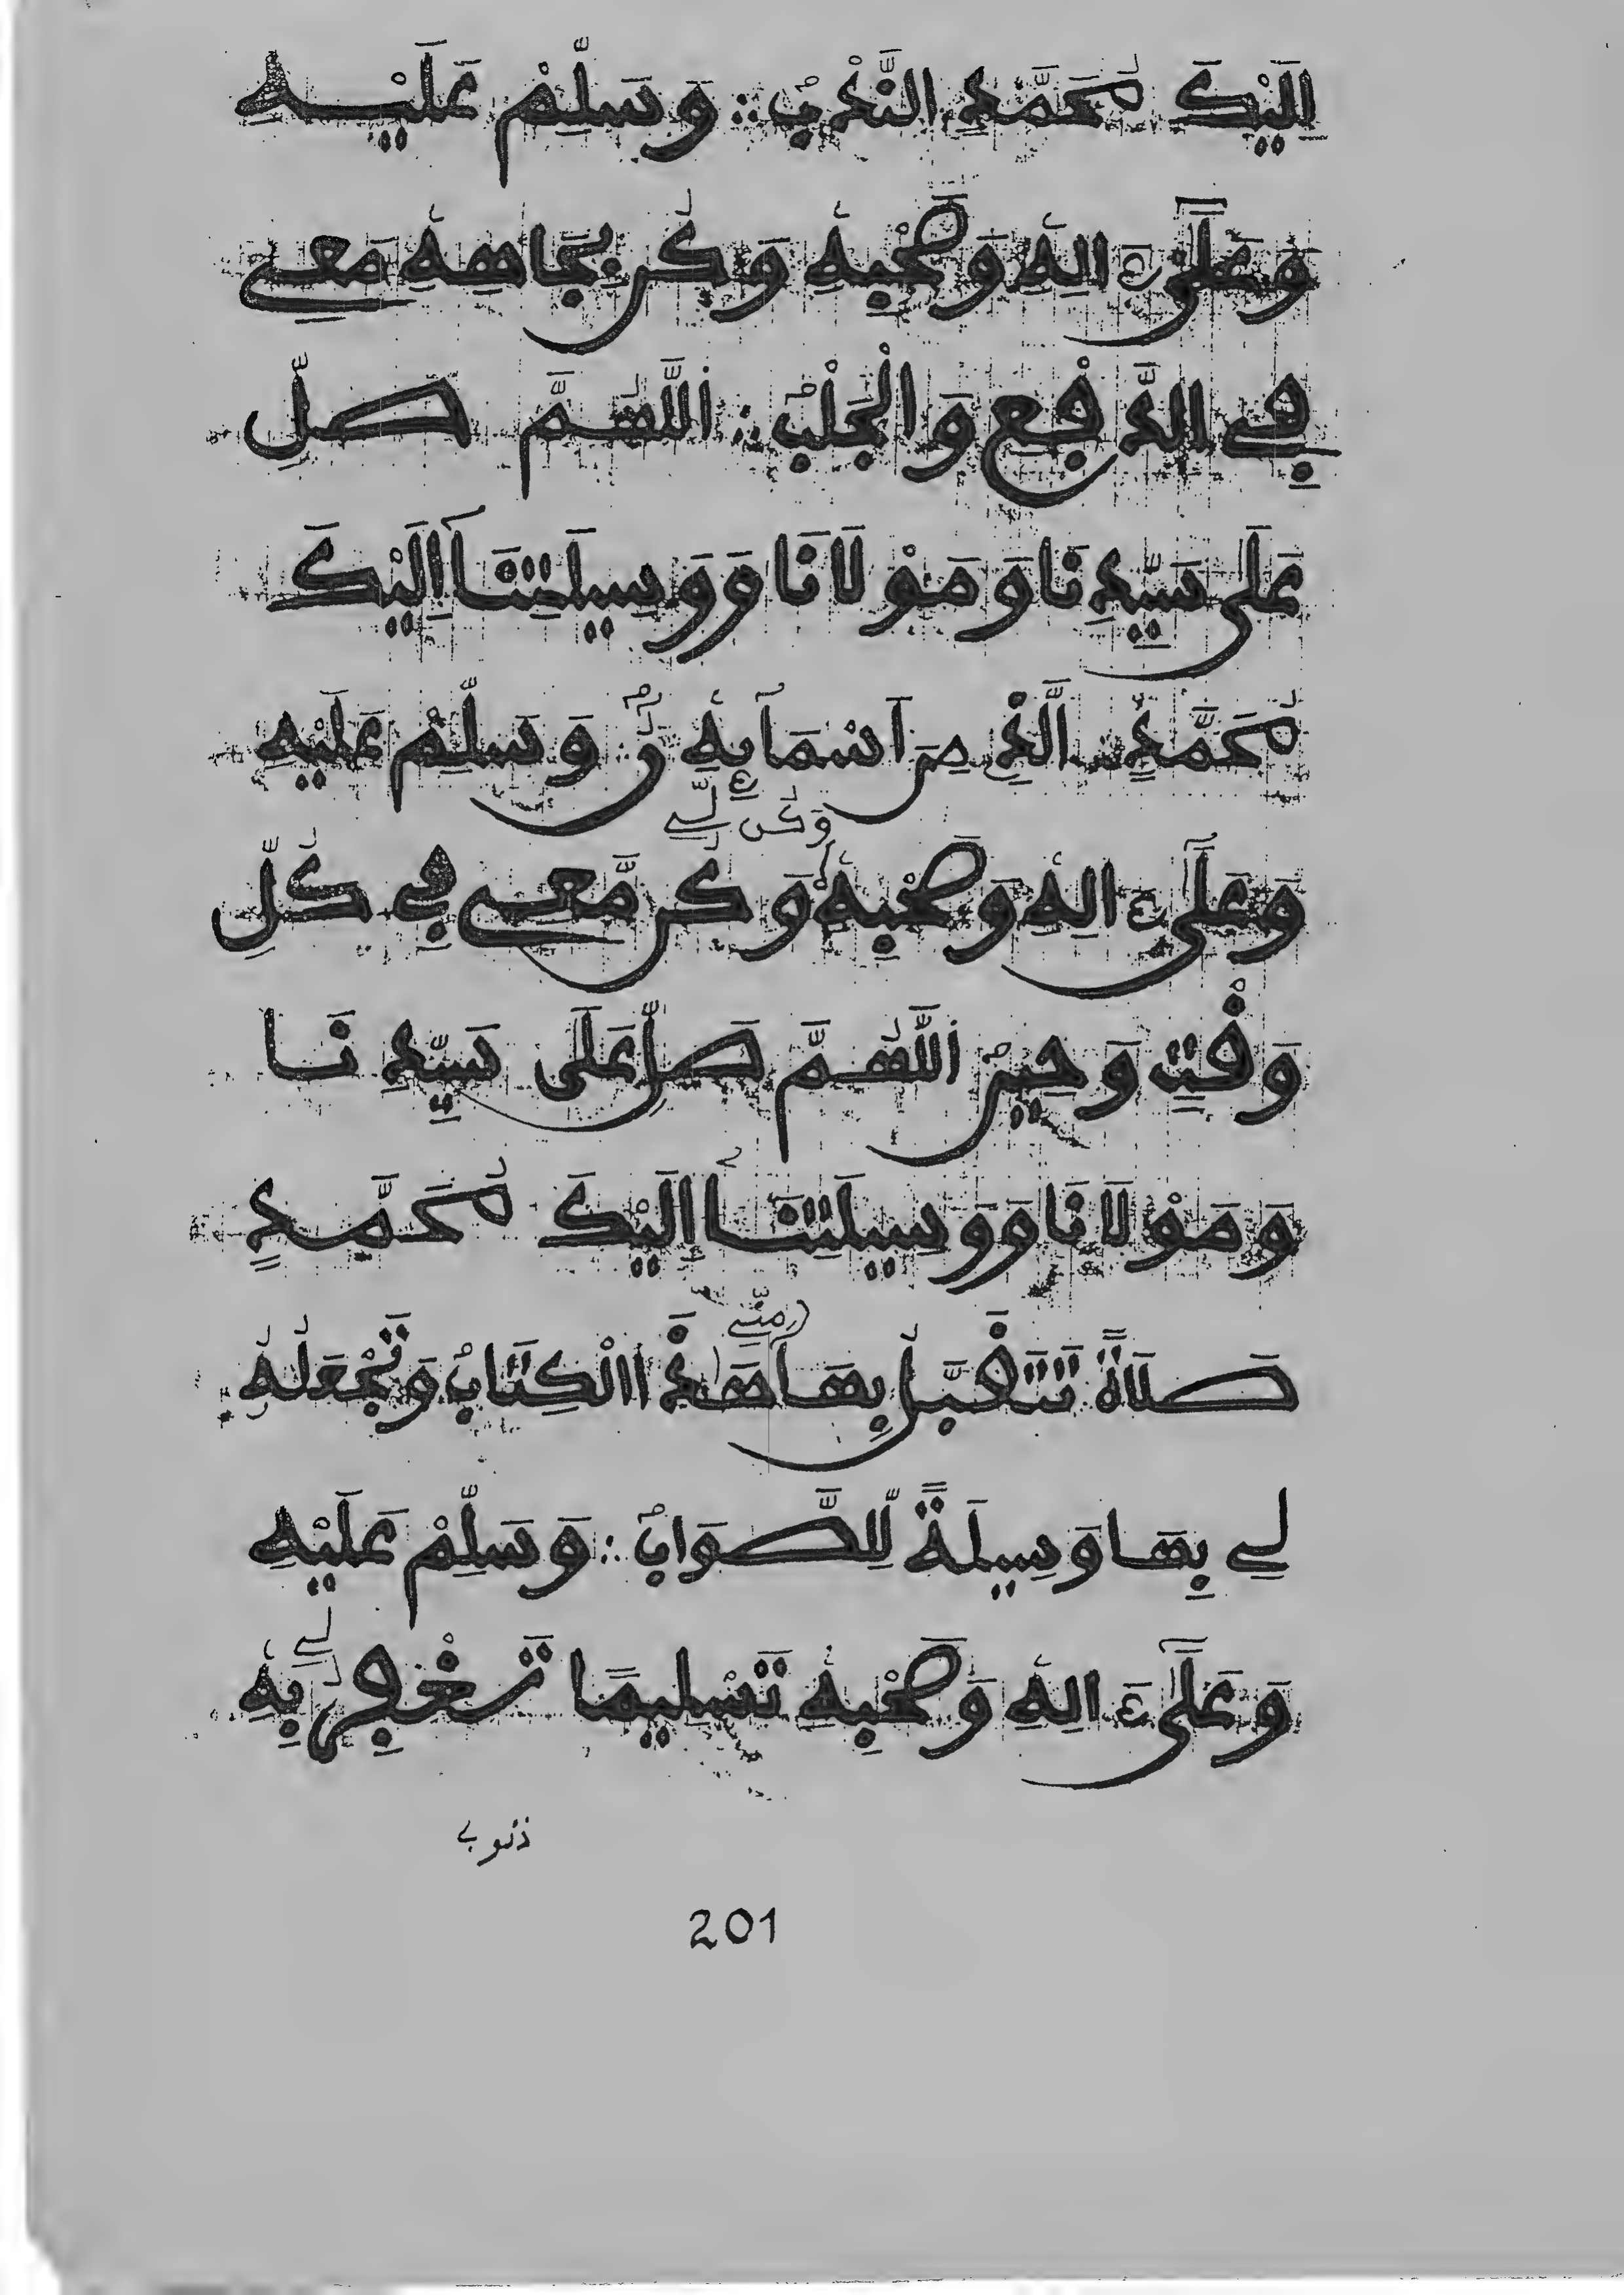 إِلَيْكَ مُحَمَّدٍ النَّدْبُ ∴ وَسَلِّمْ عَلَيْهِ
وَعَلَىٰ ءَالِهِ وَصَحْبِهِ وَكُن بِجَاهِهِ مَعِے
فِے الدَّفْعِ وَالْجَلْبُ ∴ اللَّهُمَّ صَلِّ
عَلَى سَيِّدِنَا وَمَوْلَانَا وَوَسِيلَتِنَا إِلَيْكَ
مُحَمَّدٍ الَّذِے مِنَ اَسْمَائِهِ رُ ∴ وَسَلِّمْ عَلَيْهِ
وَكُن لِّے
وَعَلَىٰ ءَالِهِ وَصَحْبِهِ وَكُن مَّعِے فِے كُلِّ
وَقْتٍ وَحِينٍ اللَّهُمَّ صَلِّ عَلَى سَيِّدِنَا
وَمَوْلَانَا وَوَسِيلَتِنَا إِلَيْكَ مُحَمَّدٍ
مِنِّے
صَلَاةً تَتَقَبَّلُ بِهَا هَذَا الْكِتَابُ وَتَجْعَلُهُ
لِے بِهَا وَسِيلَةً لِّلصَّوَابُ ∴ وَسَلِّمْ عَلَيْهِ
لِے
وَعَلَىٰ ءَالِهِ وَصَحْبِهِ تَسْلِيمًا تَغْفِرُ بِهِ
ذنوبے
201